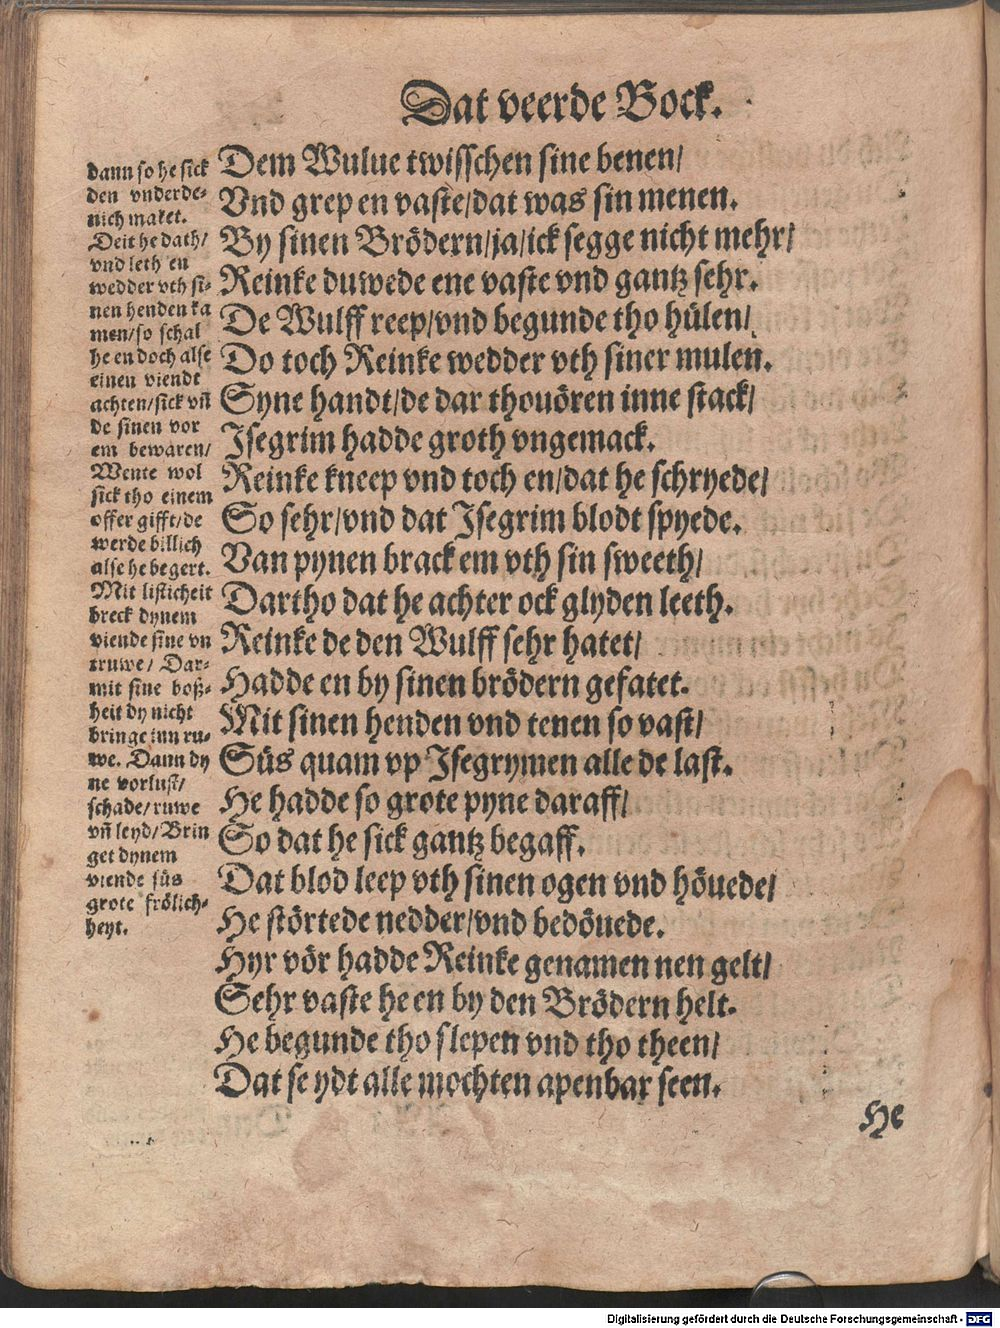 Dat veerde Bock.
dann so he sick
den vnderde-
nich maket.
Deit he dath/
vnd leth en
wedder vth si-
nen henden ka
men/so schal
he en doch alse
einen viendt
achten/sick vñ
de sinen vor
em bewaren/
Wente wol
sick tho einem
offer gifft/de
werde billich
alse he begert.
Mit listicheit
breck dynem
viende sine vn
truwe/ Dar-
mit sine boß-
heit dy nicht
bringe inn ru-
we. Dann dy
ne vorlust/
schade/ruwe
vñ leyd/Brin
get dynem
viende süs
grote frölich-
heyt.
Dem Wulue twisschen sine benen/
Vnd grep en vaste/dat was sin menen.
By sinen Brödern/ja/ick segge nicht mehr/
Reinke duwede ene vaste vnd gantz sehr.
De Wulff reep/vnd begunde tho hülen/
Do toch Reinke wedder vth siner mulen.
Syne handt/de dar thouören inne stack/
Isegrim hadde groth vngemack.
Reinke kneep vnd toch en/dat he schryede/
So sehr/vnd dat Isegrim blodt spyede.
Van pynen brack em vth sin sweeth/
Dartho dat he achter ock glyden leeth.
Reinke de den Wulff sehr hatet/
Hadde en by sinen brödern gefatet.
Mit sinen henden vnd tenen so vast/
Süs quam vp Isegrymen alle de last.
He hadde so grote pyne daraff/
So dat he sick gantz begaff.
Dat blod leep vth sinen ogen vnd höuede/
He störtede nedder/vnd bedöuede.
Hyr vör hadde Reinke genamen nen gelt/
Sehr vaste he en by den Brödern helt.
He begunde tho slepen vnd tho theen/
Dat se ydt alle mochten apenbar seen.
He
Digitalisierung gefördert durch die Deutsche Forschungsgemeinschaft - DFG